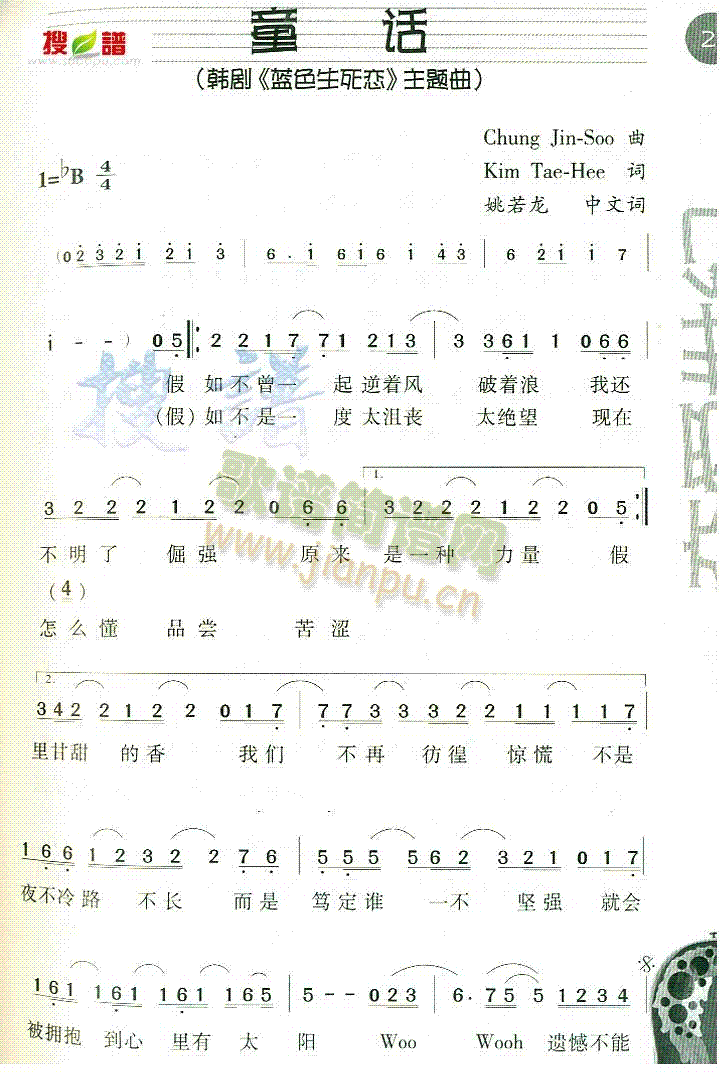 搜谱
www.sooopu.com
童 话
2
(韩剧《蓝色生死恋》主题曲)
Chung Jin-Soo 曲
Kim Tae-Hee 词
姚若龙 中文词
1=♭B 4/4
(0 2 3 2 1 2 1 3 | 6 . 1 6 1 6 1 4 3 | 6 2 1 1 7
i - - ) 0 5 |: 2 2 1 7 7 1 2 1 3 | 3 3 6 1 1 0 6 6
假 如不曾一 起 逆着风 破着浪 我还
(假)如不是一 度 太沮丧 太绝望 现在
搜譜
歌谱简谱网
www.jianpu.cn
1.
3 2 2 2 1 2 2 0 6 6 | 3 2 2 2 1 2 2 0 5 :|
不明了 倔强 原来 是一种 力量 假
(4)
怎么懂 品尝 苦涩
2.
3 4 2 2 2 1 2 2 0 1 7 | 7 7 3 3 3 2 2 1 1 1 1 7
里甘甜 的香 我们 不再 彷徨 惊慌 不是
1 6 6 1 2 3 2 2 2 7 6 | 5 5 5 5 6 2 3 2 1 0 1 7
夜不冷路 不长 而是 笃定谁 一不 坚强 就会
1 6 1 1 6 1 1 6 1 1 6 5 | 5 - - 0 2 3 | 6 . 7 5 5 1 2 3 4
被拥抱 到心 里有 太 阳 Woo Wooh 遗憾不能